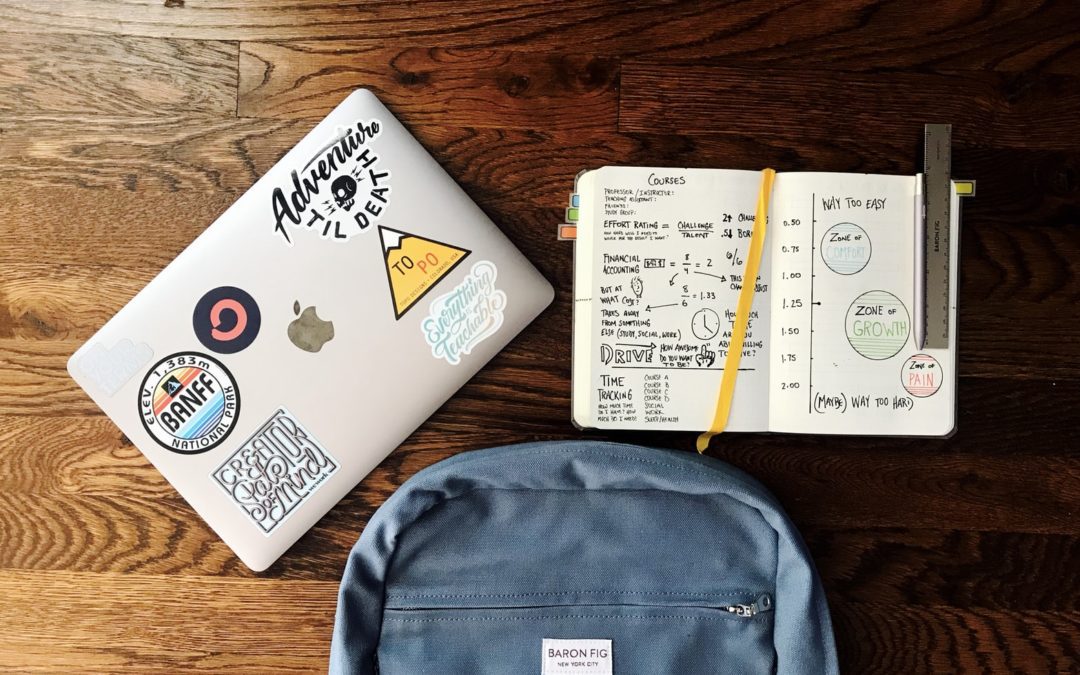 Adventure
TIL DEATH
TO PO
TOPO DESIGNS · COLORADO, USA
Everything
is
Teachable
ELEV. 1,383m
BANFF
NATIONAL PARK
CREATOR
State
of Mind
COURSES
PROFESSOR / INSTRUCTOR:
TEACHING ASSISTANT:
FRIENDS:
STUDY GROUP:
EFFORT RATING = CHALLENGE
TALENT
HOW HARD WILL I NEED TO
WORK FOR THE RESULT I WANT?
2↑
.5↓
FINANCIAL
ACCOUNTING
= 8/4 = 2
6/6
BUT AT
WHAT COST?
8/6 = 1.33
TAKES AWAY
FROM SOMETHING
ELSE (STUDY, SOCIAL, WORK)
DRIVE
HOW AWESOME
DO YOU WANT
TO BE?
TIME
TRACKING
HOW MUCH TIME
DO I HAVE? HOW
MUCH DO I NEED?
COURSE A
COURSE B
COURSE C
COURSE D
SOCIAL
WORK
SLEEP/HEALTH
WAY TOO EASY
0.50
0.75
1.00
1.25
1.50
1.75
2.00
ZONE OF
COMFORT
ZONE OF
GROWTH
ZONE OF
PAIN
(MAYBE) WAY TOO HARD
BARON FIG
BARON FIG
NEW YORK CITY